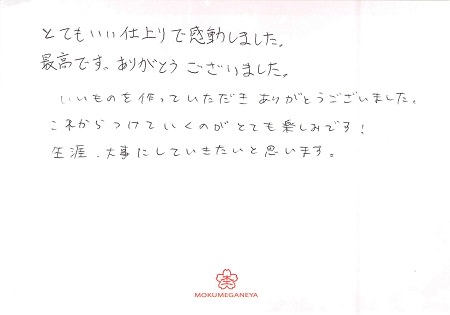 とてもいい仕上りで感動しました。
最高です。ありがとうございました。
いいものを作っていただきありがとうございました。
これからつけていくのがとても楽しみです!
生涯、大事にしていきたいと思います。
MOKUMEGANEYA